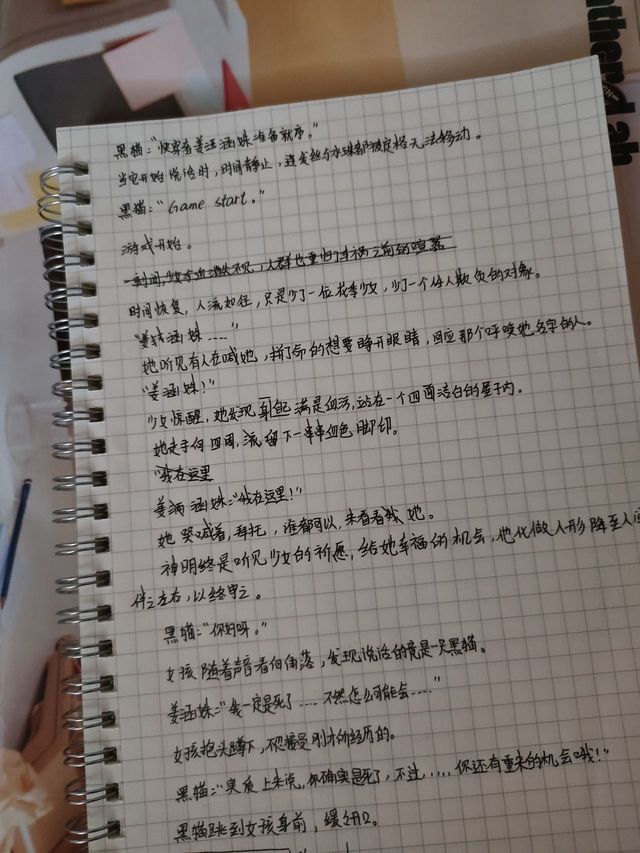 黑猫："快穿者姜涵姝准备就序。"
当它开始说话时，时间静止，连发丝和水珠都被定格无法移动。
黑猫："Game start."
游戏开始。
一时间，少女 消失不见，人群也重归于车祸之前的喧嚣
时间恢复，人流如往，只是少了一位花季少女，少了一个任人欺负的对象。
"姜涵姝……"
她听见有人在喊她，拼了命的想要睁开眼睛，回应那个呼唤她名字的人。
"姜涵姝！"
少女惊醒，她发现自己满是血污，站在一个四面洁白的屋子内。
她走于向四周，流留下一串串血色脚印。
"我在这里
姜涵姝："我在这里！"
她哭喊着，拜托，谁都可以，来看看我她。
神明终是听见少女的祈愿，给她幸福的机会，他化做人形降至人间
伴之左右，以终守之。
黑猫："你好呀。"
女孩随着声音看向角落，发现说话的竟是一只黑猫。
姜涵姝："我一定是死了……不然怎么可能会……"
女孩抱头蹲下，不想接受刚才所经历的。
黑猫："实质上来说，你确实是死了，不过……，你还有重来的机会哦！"
黑猫跳到女孩身前，缓缓开口。
thered
ah